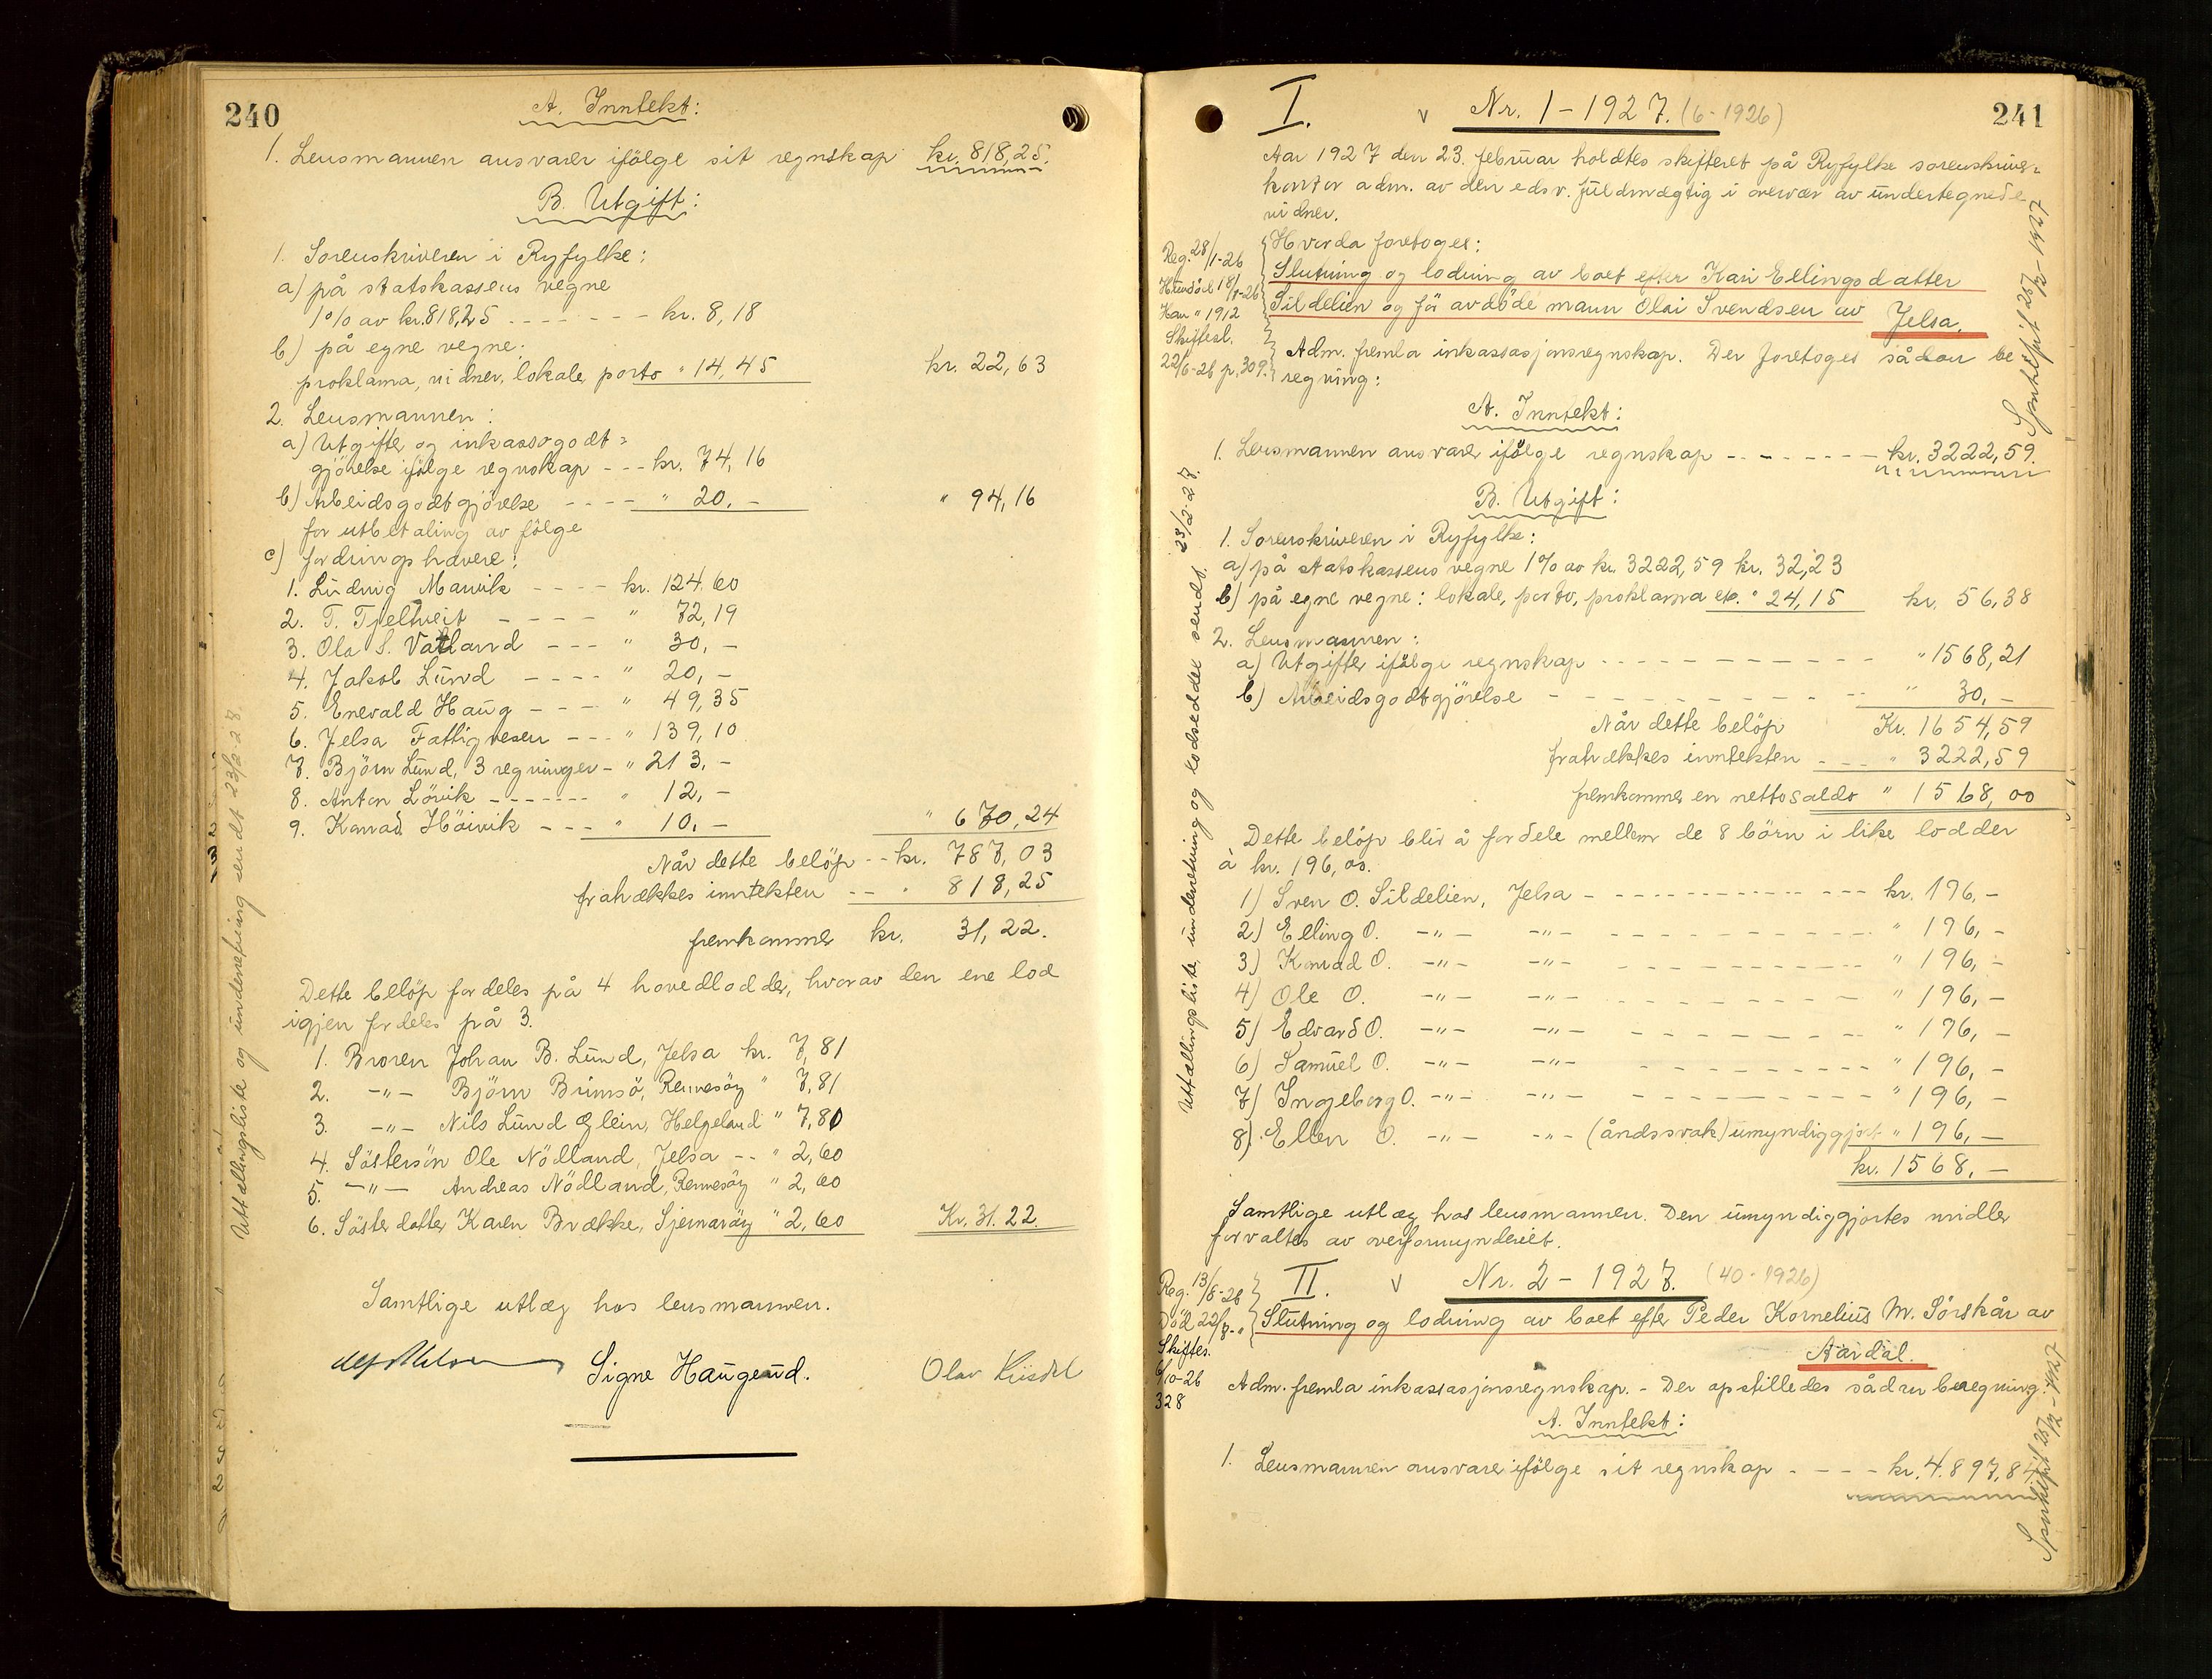 240
A. Inntekt:
1. Lensmannen ansvarer ifölge sit regnskap kr. 818,25.
B. Utgift:
1. Sorenskriveren i Ryfylke:
a) på statskassens vegne
1% av kr. 818,25 - - - - - - - kr. 8,18
b) på egne vegne:
proklama, vidner, lokale, porto " 14,45 kr. 22,63
2. Lensmannen:
a) Utgifter og inkassogodt-
gjörelse ifölge regnskap - - - kr. 74,16
b) Arbeidsgodtgjörelse - - - - " 20,- " 94,16
for utbetaling av fölge
c) fordringshavere:
1. Ludvig Marvik - - - - kr. 124,60
2. T. Tjeltveit - - - - " 72,19
3. Ola S. Vatland - - - " 30,-
4. Jakob Lund - - - - " 20,-
5. Enevald Haug - - - " 49,35
6. Jelsa Fattigvesen - - - " 139,10
7. Björn Lund, 3 regninger - " 213,-
8. Anton Lövik - - - - - - - " 12,-
9. Konrad Höivik - - - " 10,- " 670,24
Når dette belöp - - kr. 787,03
fratrækkes inntekten - - " 818,25
fremkommer kr. 31,22.
Dette belöp fordeles på 4 hovedlodder, hvorav den ene lod
igjen fordeles på 3.
1. Broren Johan B. Lund, Jelsa kr. 7,81
2. -"- Björn Brimsö, Rennesöy " 7,81
3. -"- Nils Lund Glein, Helgeland " 7,80
4. Söstersön Ole Nödland, Jelsa - - " 2,60
5. -"- Andreas Nödland, Rennesöy " 2,60
6. Sösterdatter Karen Brække, Sjernaröy " 2,60 Kr. 31.22.
Samtlige utlæg hos lensmannen.
Signe Haugerud. Olav
Uttællingsliste og underretning sendt 23/2-28.
241
I. v Nr. 1 - 1927. (6-1926)
Aar 1927 den 23. februar holdtes skifteret på Ryfylke sorenskriver-
kontor adm. av den edsv. fuldmægtig i overvær av undertegnede
vidner.
Hvorda foretoges:
Slutning og lodning av boet efter Kari Ellingsdatter
Sildelien og för avdöde mann Olai Svendsen av Jelsa.
Reg. 28/1-26
18/1-26
" 1912
Skiftesl.
22/6-26 p. 309.
Adm. fremla inkassasjonsregnskap. Der foretoges sådan be
regning:
A. Inntekt:
1. Lensmannen ansvarer ifölge regnskap - - - - - - - kr. 3222,59.
B. Utgift:
1. Sorenskriveren i Ryfylke:
a) på statskassens vegne 1% av kr. 3222,59 kr. 32,23
b) på egne vegne: lokale, porto, proklama etc. " 24,15 kr. 56,38
2. Lensmannen:
a) Utgifter ifölge regnskap - - - - - - - - - - " 1568,21
b) Arbeidsgodtgjörelse - - - - - - - - - - - - " 30,-
Når dette belöp Kr. 1654,59
fratrækkes inntekten - - - " 3222,59
fremkommer en nettosaldo " 1568,00
Dette belöp blir å fordele mellem de 8 börn i like lodder
á kr. 196,00.
1) Sven O. Sildelien, Jelsa - - - - - - - - - - - - - kr. 196,-
2) Elling O. -"- -"- - - - - - - - - - - " 196,-
3) Konrad O. -"- -"- - - - - - - - - - - " 196,-
4) Ole O. -"- -"- - - - - - - - - - - " 196,-
5) Edvard O. -"- -"- - - - - - - - - - " 196,-
6) Samuel O. -"- -"- - - - - - - - - - " 196,-
7) Ingeborg O. -"- -"- - - - - - - - - - " 196,-
8) Ellen O. -"- -"- (åndssvak) umyndiggjort " 196,-
kr. 1568,-
Samtlige utlæg hos lensmannen. Den umyndiggjortes midler
forvaltes av overformynderiet.
Uttællingsliste, underretning og lodseddel sendt. 23/2-28.
II. v Nr. 2 - 1927. (40-1926)
Reg. 13/8-26
Död 22/8-"
Skiftes.
6/10-26
328
Slutning og lodning av boet efter Peder Kornelius M. Sörskår av
Aardal.
Adm. fremla inkassasjonsregnskap. - Der opstilledes sådan beregning:
A. Inntekt:
1. Lensmannen ansvarer ifölge sit regnskap - - - - kr. 4.897,84